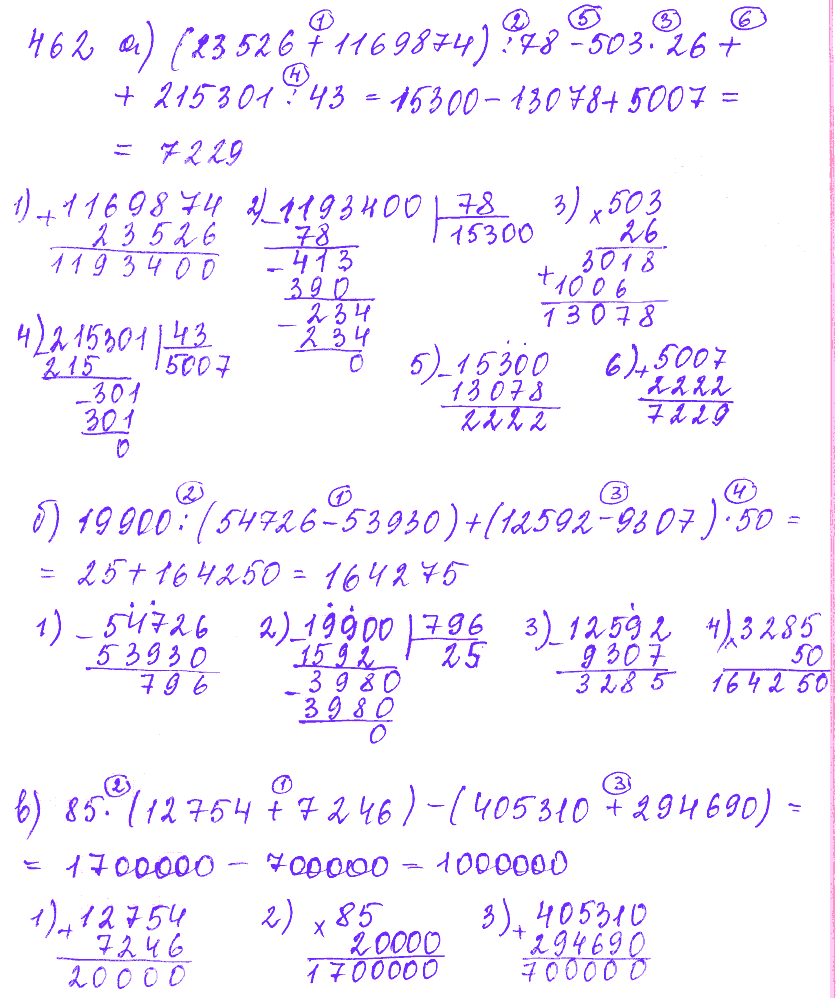 462 а) (23526 + 1169874) : 78 - 503 · 26 +
① ② ⑤ ③ ⑥
+ 215301 : 43 = 15300 - 13078 + 5007 =
④
= 7229
1) + 1169874
23526
1193400
2) - 1193400 | 78
78 15300
- 413
390
- 234
234
0
3) × 503
26
+ 3018
1006
13078
4) - 215301 | 43
215 5007
- 301
301
0
5) - 15300
13078
2222
6) + 5007
2222
7229
② ① ③ ④
б) 19900 : (54726 - 53930) + (12592 - 9307) · 50 =
= 25 + 164250 = 164275
1) - 54726
53930
796
2) - 19900 | 796
1592 25
- 3980
3980
0
3) - 12592
9307
3285
4) × 3285
50
164250
② ① ③
в) 85 · (12754 + 7246) - (405310 + 294690) =
= 1700000 - 700000 = 1000000
1) + 12754
7246
20000
2) × 85
20000
1700000
3) + 405310
294690
700000